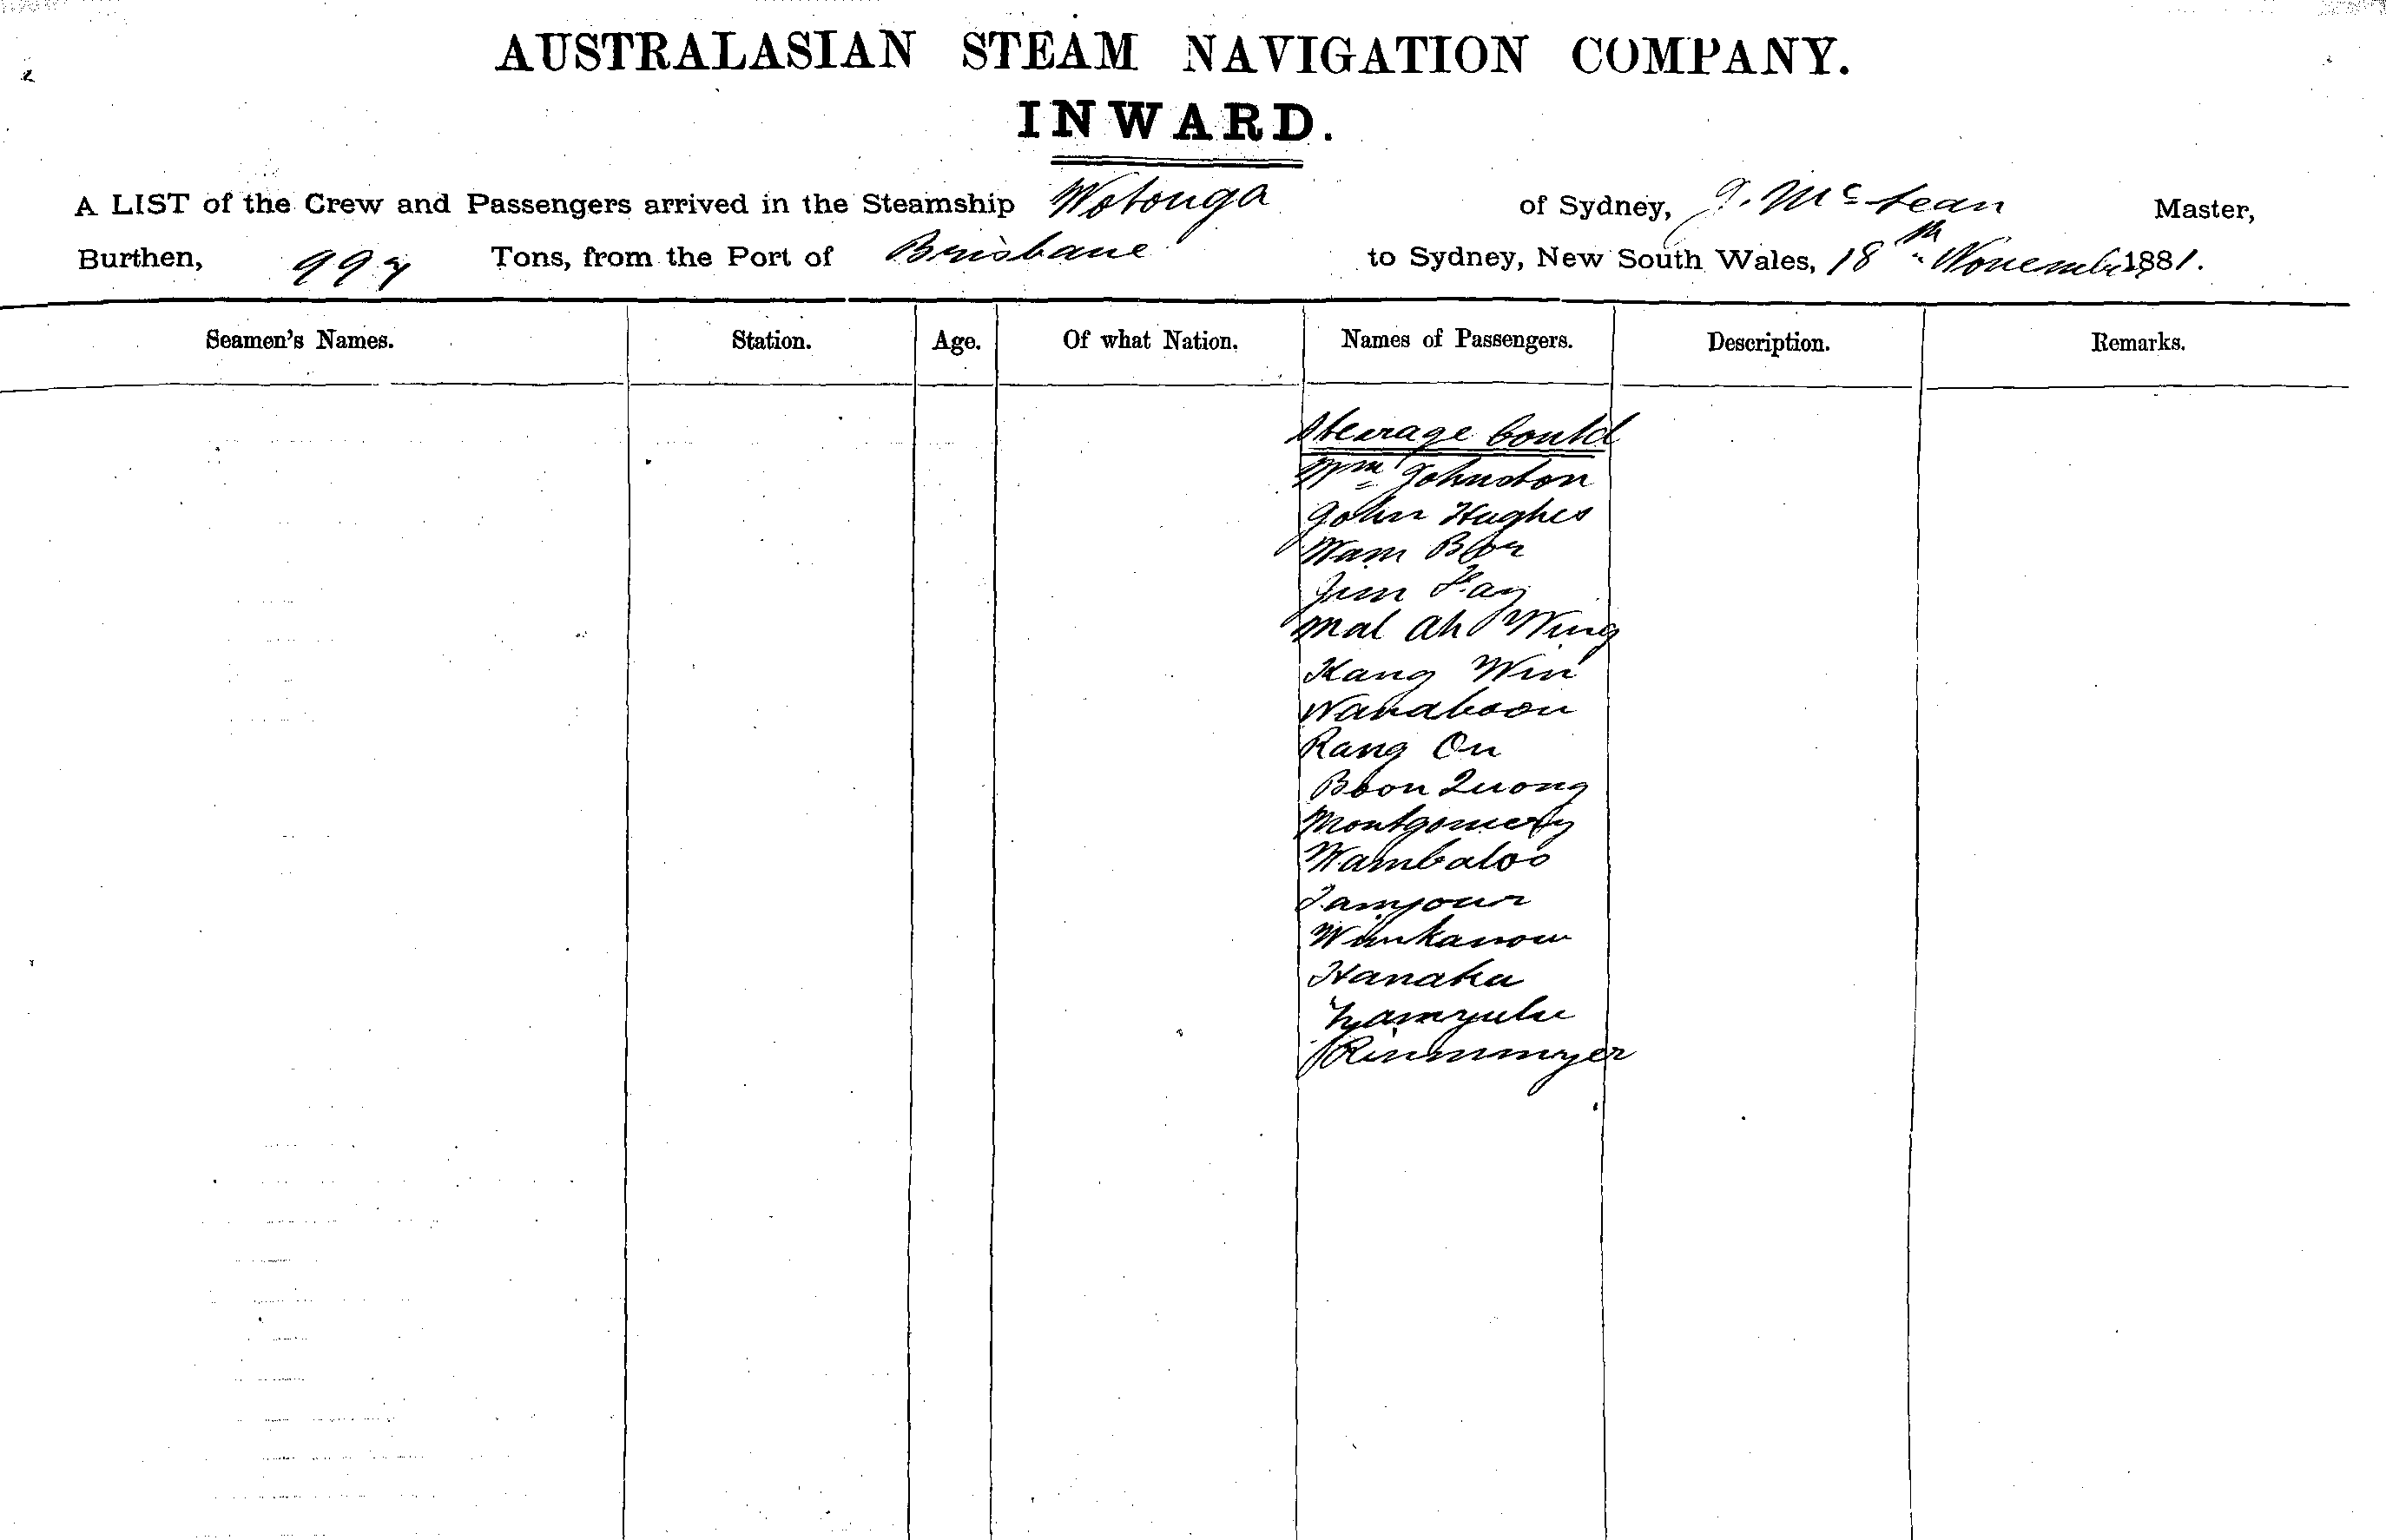 AUSTRALASIAN STEAM NAVIGATION COMPANY.
INWARD.
A LIST of the Crew and Passengers arrived in the Steamship Wotonga of Sydney, J. McLean Master,
Burthen, 997 Tons, from the Port of Brisbane to Sydney, New South Wales, 18th November 1881.
Seamen's Names. Station. Age. Of what Nation. Names of Passengers. Description. Remarks.
Steerage Contd
Wm Johnston
John Hughes
Wam
Jim Fay
Mal Ah Wing
Kang Win
Wanaboou
Rang On
Boon Quong
Montgomery
Wambaloo
Jamjour
Wankanow
Hanaka
Rimmmyer